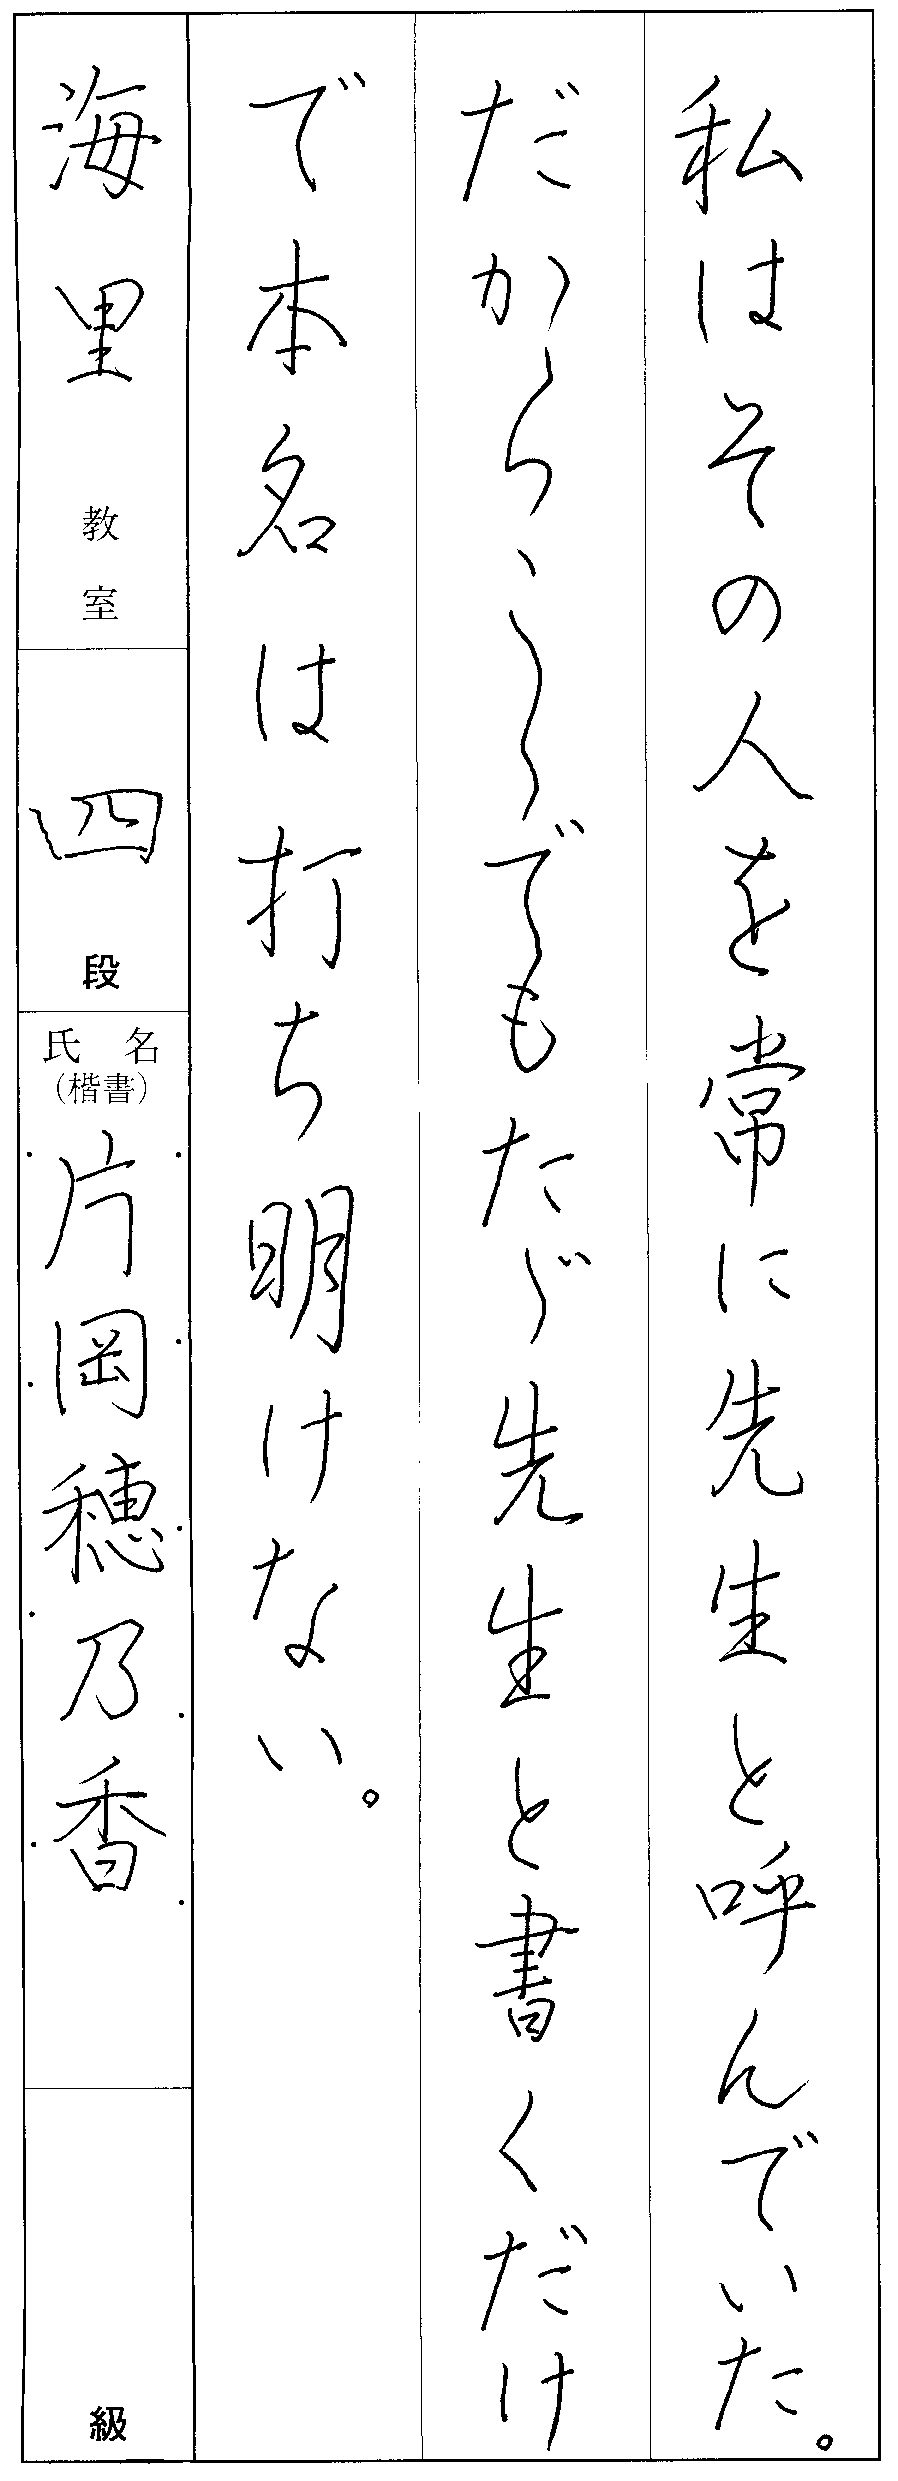 私はその人を常に先生と呼んでいた。
だからこゝでもたゞ先生と書くだけ
で本名は打ち明けない。
海里教室
四段
氏名
(楷書)
片岡穂乃香
級